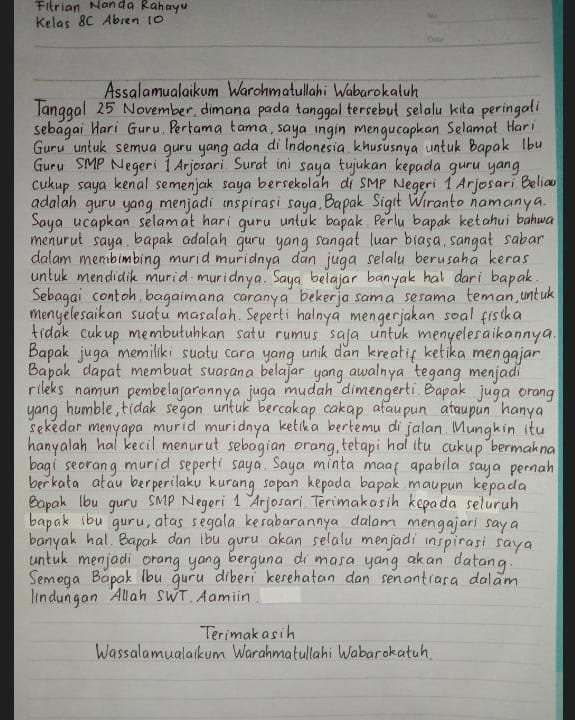 Fitrian Nanda Rahayu
Kelas 8C Absen 10
No.
Date
Assalamualaikum Warohmatullahi Wabarokatuh
Tanggal 25 November, dimana pada tanggal tersebut selalu kita peringati
sebagai Hari Guru. Pertama tama, saya ingin mengucapkan Selamat Hari
Guru untuk semua guru yang ada di Indonesia khususnya untuk Bapak Ibu
Guru SMP Negeri 1 Arjosari. Surat ini saya tujukan kepada guru yang
cukup saya kenal semenjak saya bersekolah di SMP Negeri 1 Arjosari. Beliau
adalah guru yang menjadi inspirasi saya, Bapak Sigit Wiranto namanya.
Saya ucapkan selamat hari guru untuk bapak. Perlu bapak ketahui bahwa
menurut saya, bapak adalah guru yang sangat luar biasa, sangat sabar
dalam membimbing murid muridnya dan juga selalu berusaha keras
untuk mendidik murid-muridnya. Saya belajar banyak hal dari bapak.
Sebagai contoh, bagaimana caranya bekerja sama sesama teman, untuk
menyelesaikan suatu masalah. Seperti halnya mengerjakan soal fisika
tidak cukup membutuhkan satu rumus saja untuk menyelesaikannya.
Bapak juga memiliki suatu cara yang unik dan kreatif ketika mengajar
Bapak dapat membuat suasana belajar yang awalnya tegang menjadi
rileks namun pembelajarannya juga mudah dimengerti. Bapak juga orang
yang humble, tidak segan untuk bercakap cakap ataupun ataupun hanya
sekedar menyapa murid muridnya ketika bertemu di jalan. Mungkin itu
hanyalah hal kecil menurut sebagian orang, tetapi hal itu cukup bermakna
bagi seorang murid seperti saya. Saya minta maaf apabila saya pernah
berkata atau berperilaku kurang sopan kepada bapak maupun kepada
Bapak Ibu guru SMP Negeri 1 Arjosari. Terimakasih kepada seluruh
bapak ibu guru, atas segala kesabarannya dalam mengajari saya
banyak hal. Bapak dan ibu guru akan selalu menjadi inspirasi saya
untuk menjadi orang yang berguna di masa yang akan datang.
Semoga Bapak Ibu guru diberi kesehatan dan senantiasa dalam
lindungan Allah SWT. Aamiin.
Terimakasih
Wassalamualaikum Warahmatullahi Wabarokatuh.